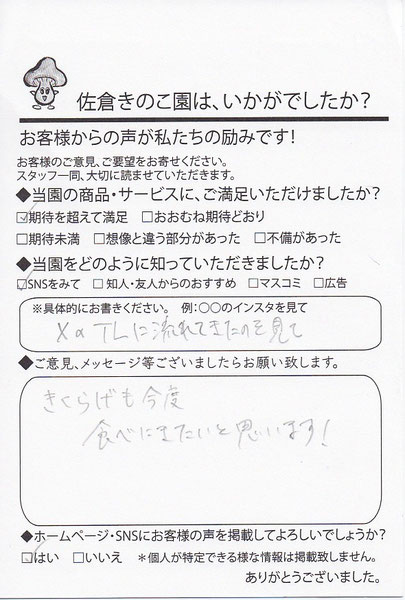 佐倉きのこ園は、いかがでしたか?
お客様からの声が私たちの励みです!
お客様のご意見、ご要望をお寄せください。
スタッフ一同、大切に読ませていただきます。
◆当園の商品・サービスに、ご満足いただけましたか?
☑期待を超えて満足 □おおむね期待どおり
□期待未満 □想像と違う部分があった □不備があった
◆当園をどのように知っていただきましたか?
☑SNSをみて □知人・友人からのおすすめ □マスコミ □広告
※具体的にお書きください。 例:○○のインスタを見て
XのTLに流れてきたのを見て
◆ご意見、メッセージ等ございましたらお願い致します。
きくらげも今度
食べにきたいと思います!
◆ホームページ・SNSにお客様の声を掲載してよろしいでしょうか?
☑はい □いいえ *個人が特定できる様な情報は掲載致しません。
ありがとうございました。